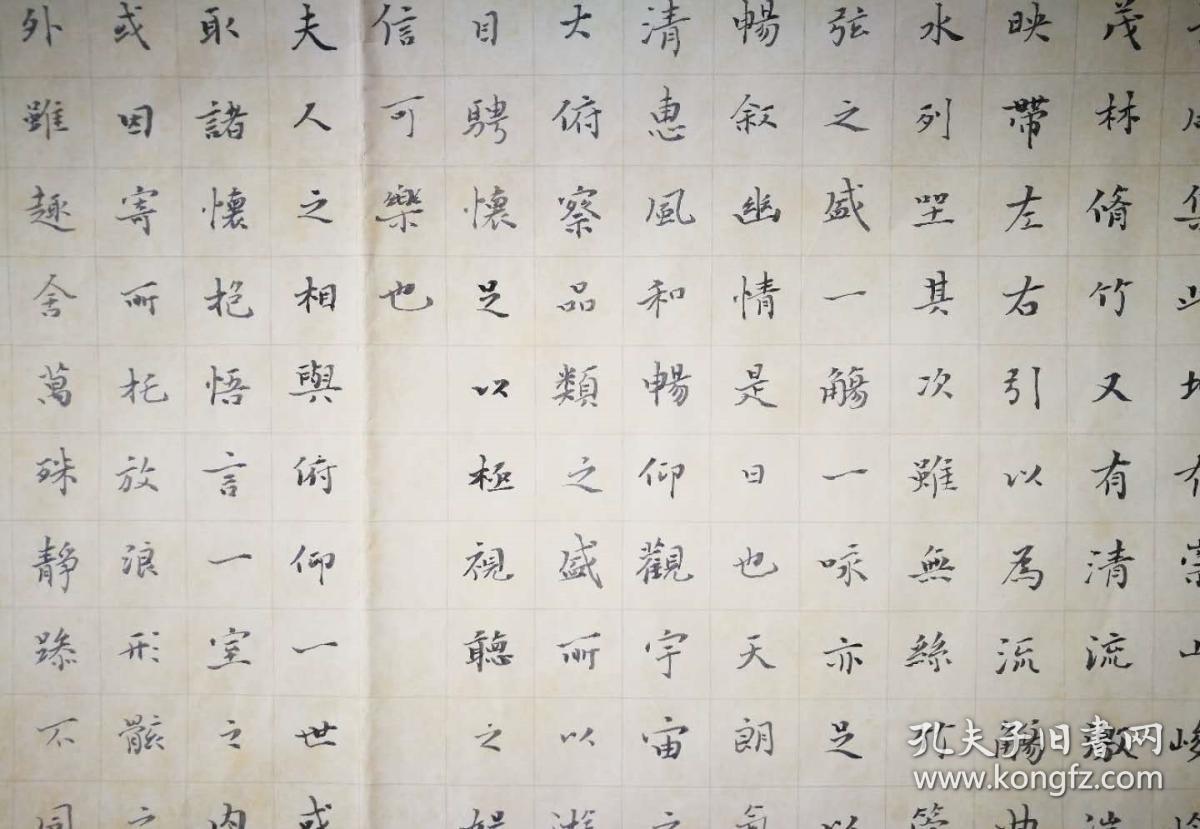 集此地有崇山峻
茂林脩竹又有清流激湍
映帶左右引以為流觴曲
水列坐其次雖無絲竹管
弦之盛一觴一咏亦足以
暢叙幽情是日也天朗氣
清惠風和暢仰觀宇宙之
大俯察品類之盛所以遊
目騁懷足以極視聽之娛
信可樂也
夫人之相與俯仰一世或
取諸懷抱悟言一室之内
或因寄所托放浪形骸之
外雖趣舍萬殊靜躁不同
孔夫子旧書网
www.kongfz.com